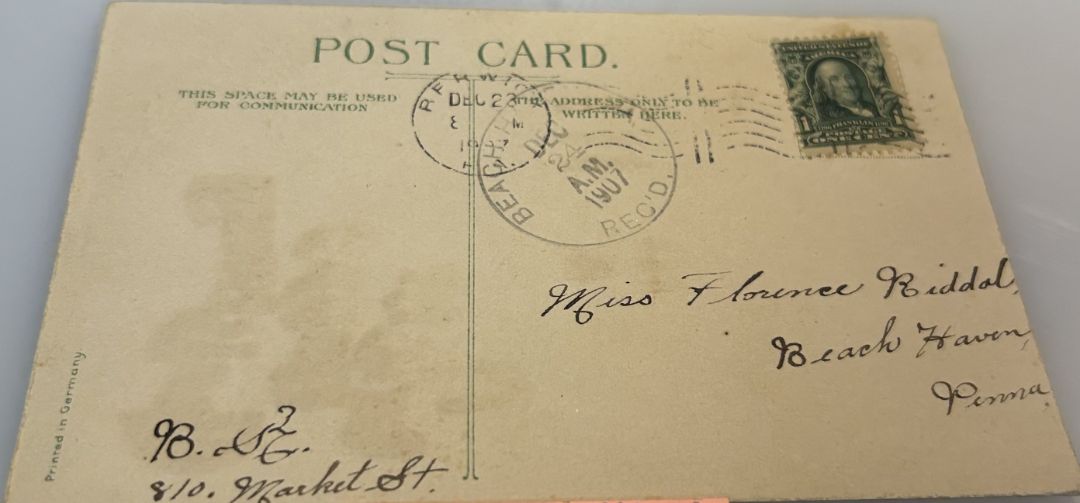 POST CARD.
THIS SPACE MAY BE USED
FOR COMMUNICATION
THE ADDRESS ONLY TO BE
WRITTEN HERE.
DEC 23
BEACH
DEC
24
A.M.
1907
REC'D.
UNITED STATES OF
AMERICA
FRANKLIN
ONE CENT
Miss Florence Riddal,
Beach Haven,
Penna.
Printed in Germany
810. Market St.